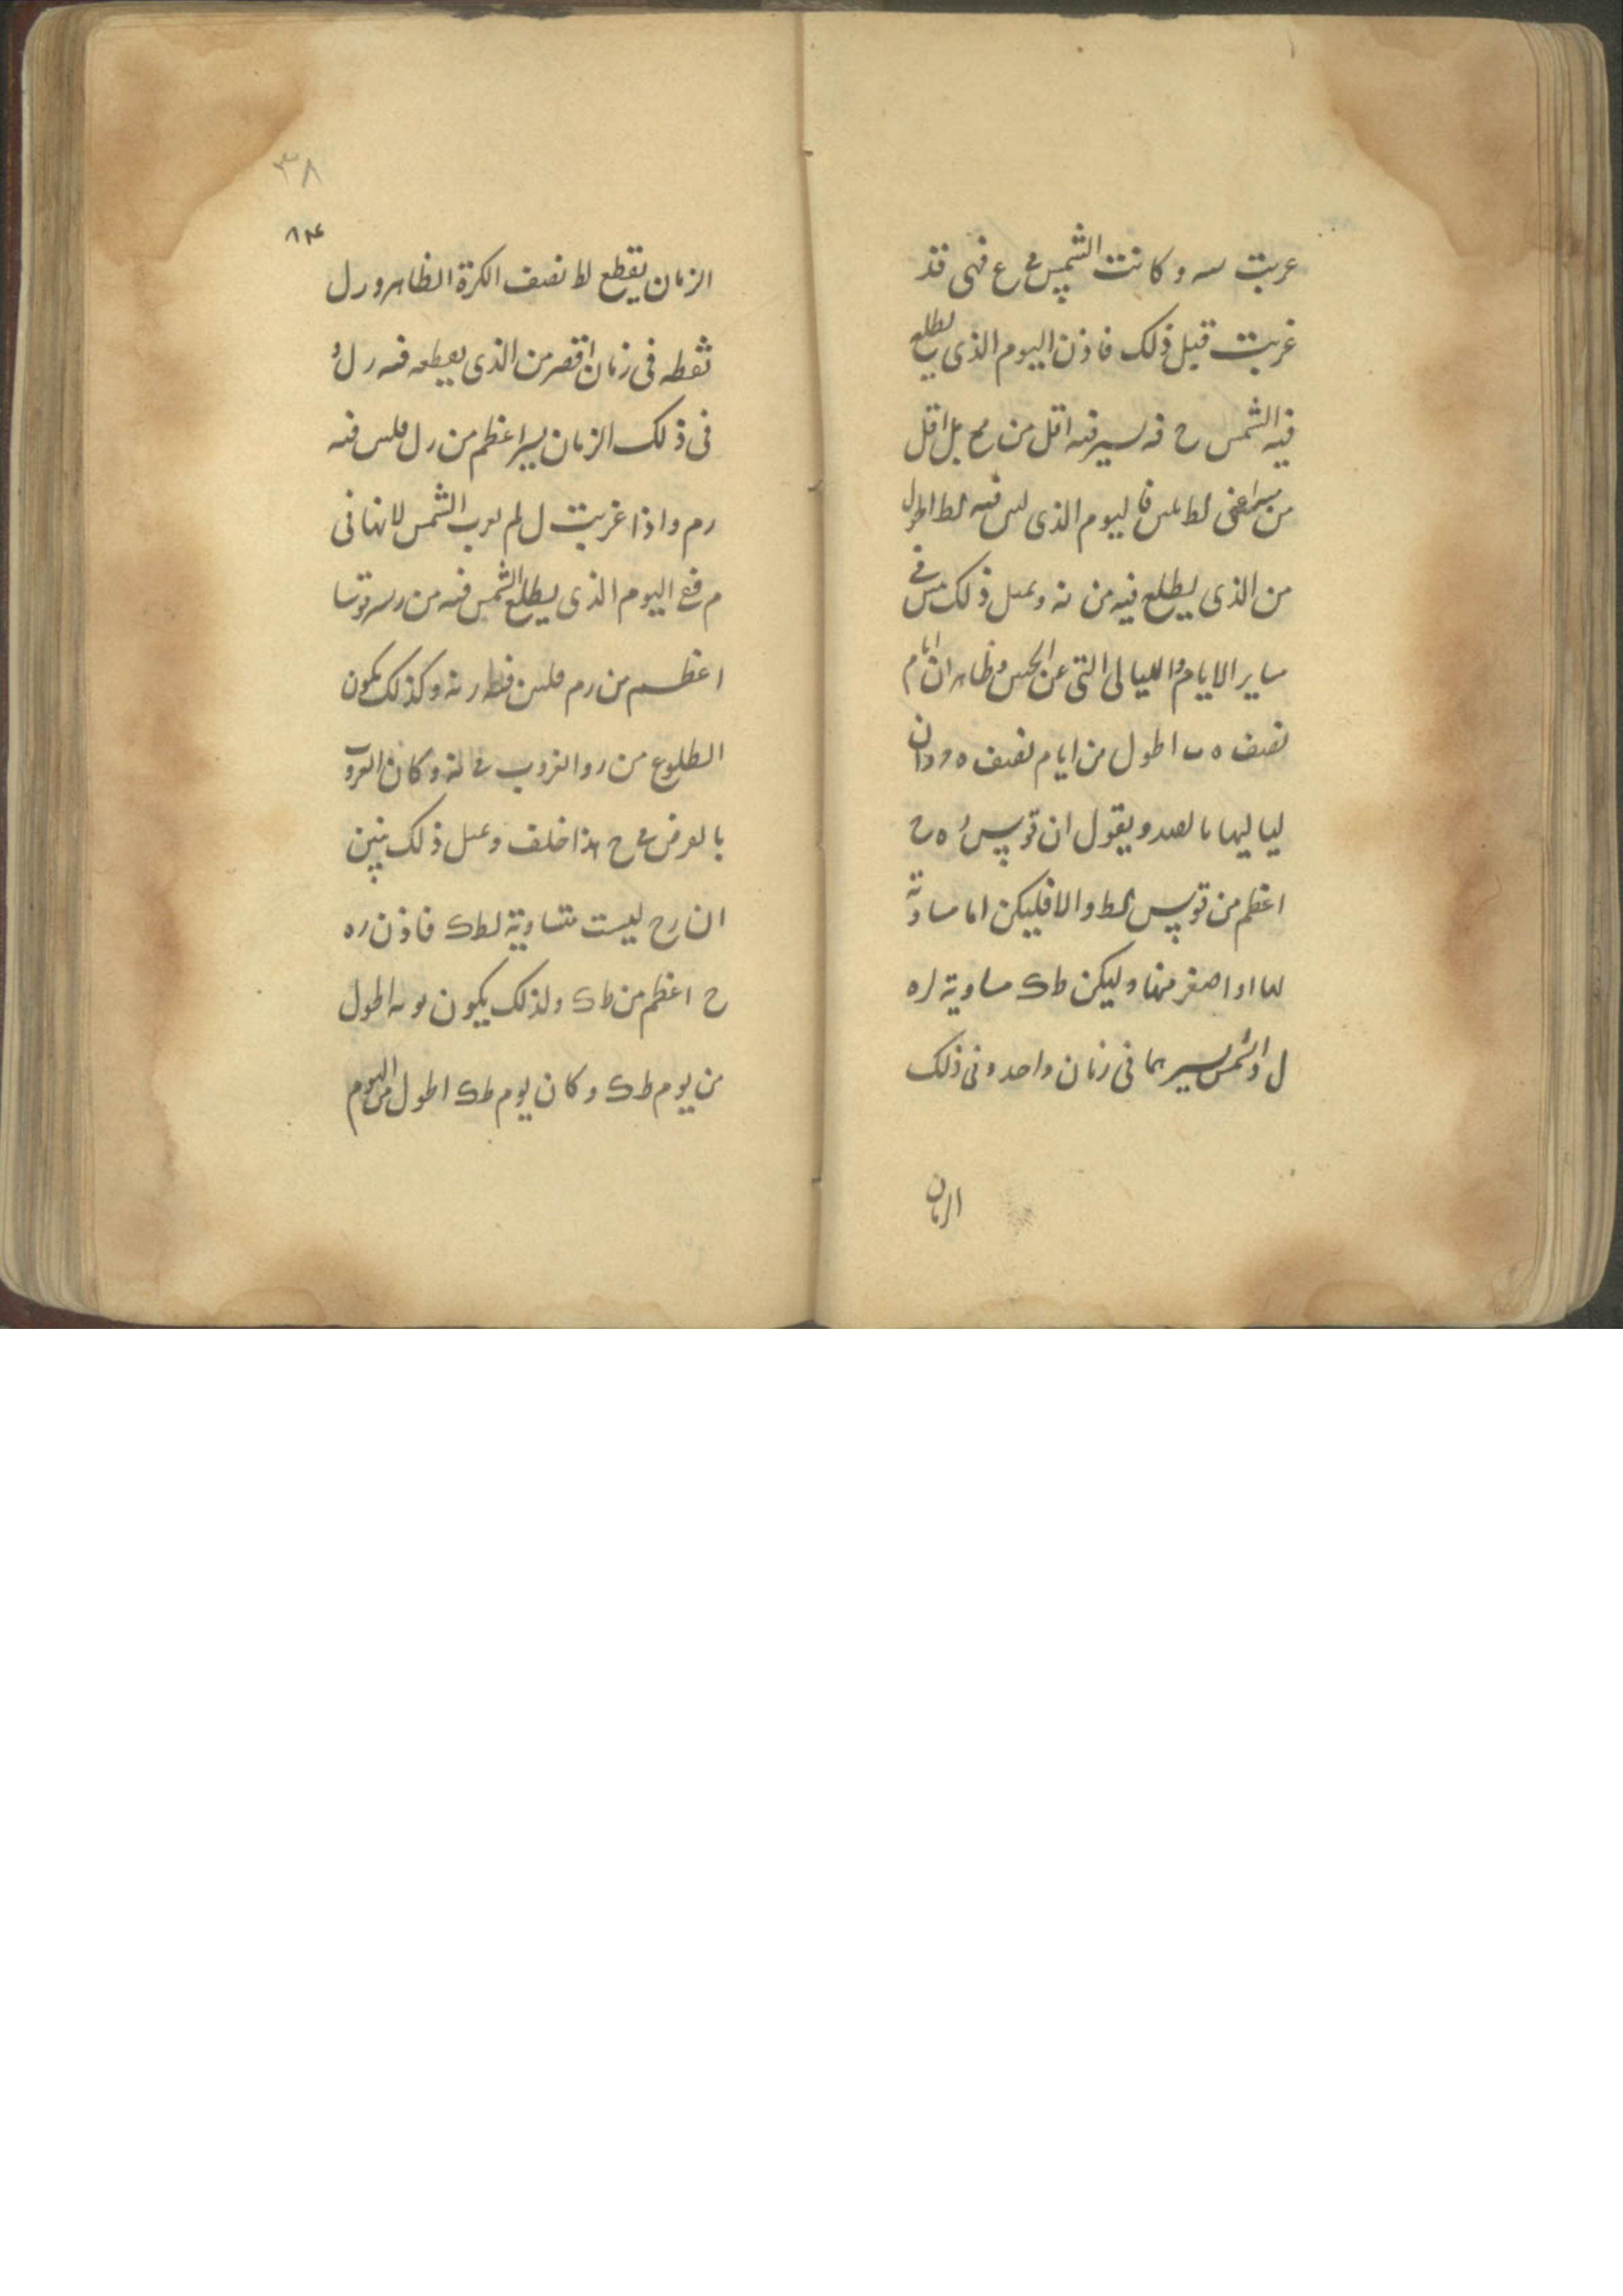 غربت سه و كانت الشمس فى ع فهى قد
غربت قبل ذلك فاذن اليوم الذى يطلع
فيه الشمس ح فه يسير فيه اقل من مح بل اقل
من فاليوم الذى ليس فيه لط اطول
من الذى يطلع فيه من نه وبمثل ذلك فى
ساير الايام والليالى التى عن الجنبين وظاهر ان ايام
نصف ه ب اطول من ايام نصف ه د وان
لياليها بالضد ويقول ان قوس ره ح
اعظم من قوس لط والا فليكن اما مساوية
لها او اصغر منها وليكن طك مساوية لره
ل والشمس يسيرهما فى زمان واحد وفى ذلك
الزمان
٣٨
الزمان يقطع لط نصف الكرة الظاهر و رل
تقطه فى زمان اقصر من الذى يقطعه فيه رل و
فى ذلك الزمان يسير اعظم من رل فليس فيه
رم واذا غربت ل لم يغرب الشمس لانها فى
م ففى اليوم الذى يطلع الشمس فيه من ر يسير قوسا
اعظم من رم فليس فيه رنه وكذلك يكون
الطلوع من ر والغروب فى نه وكان الغروب
بالفرض فى ح هذا خلف وبمثل ذلك يتبين
ان رح ليست متساوية لطك فاذن ره
ح اعظم من طك ولذلك يكون يومه اطول
من يوم طك وكان يوم طك اطول من اليوم